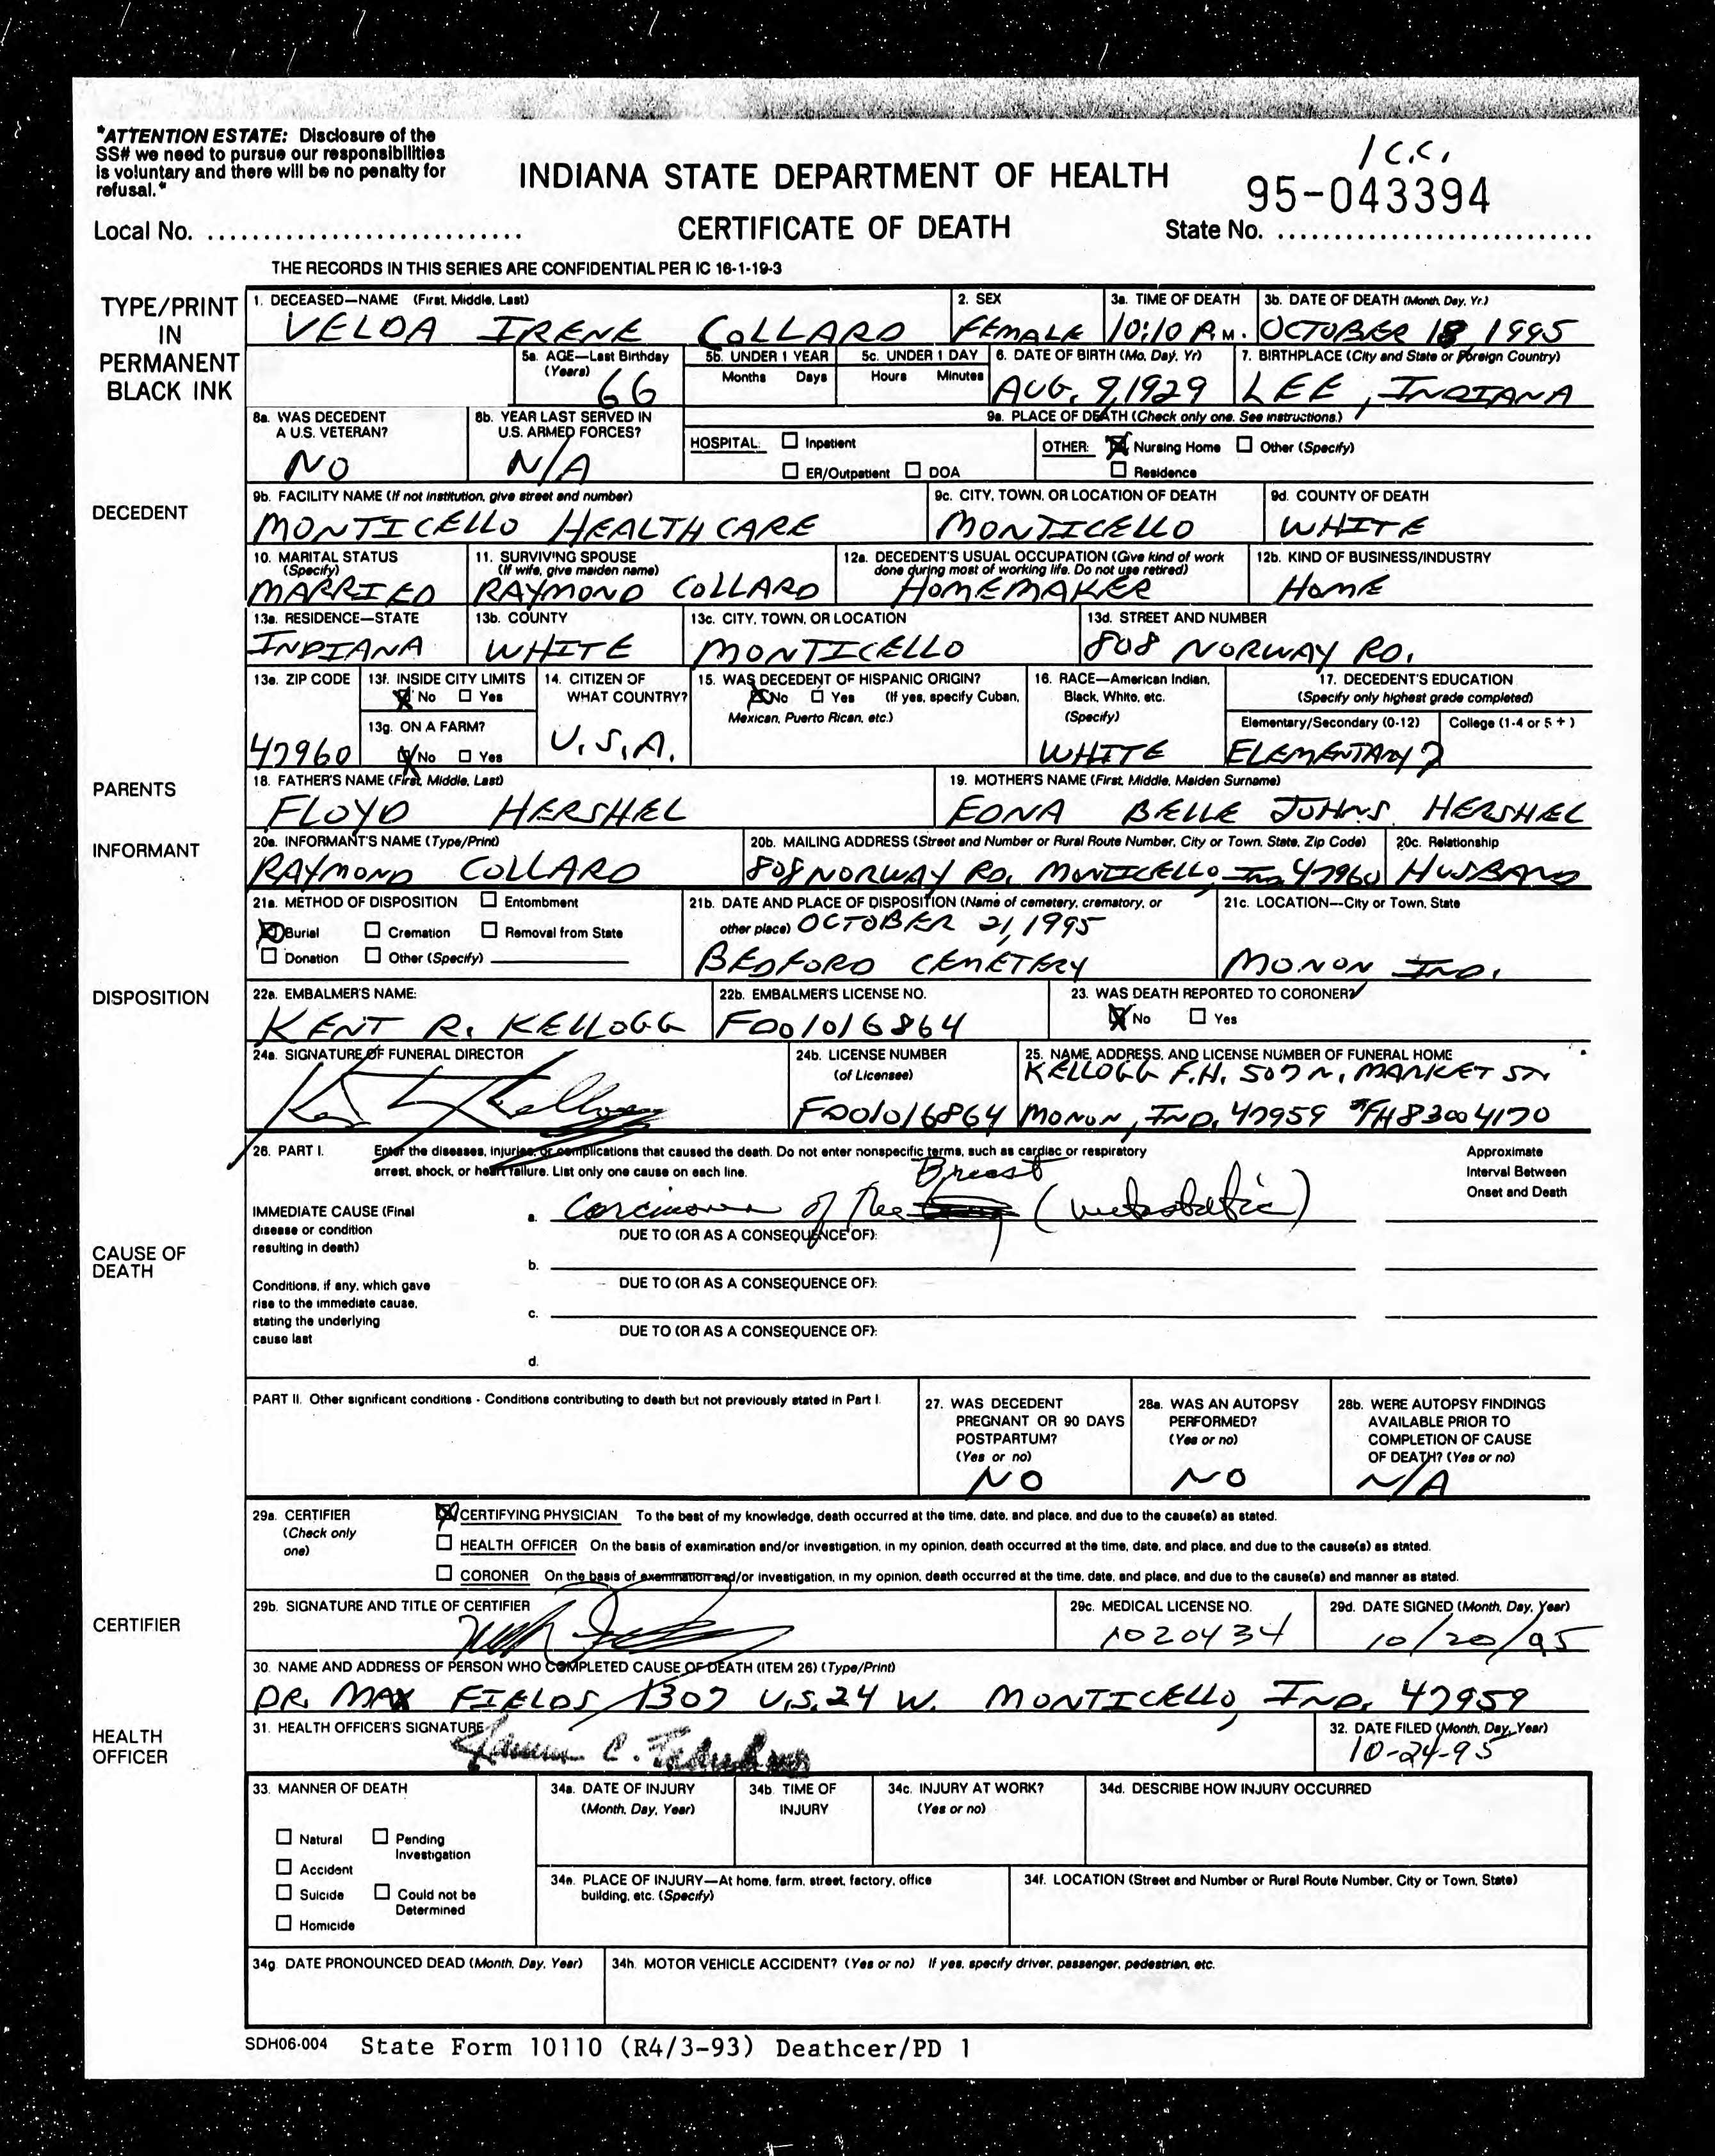 "ATTENTION ESTATE: Disclosure of the
SS# we need to pursue our responsibilities
is voluntary and there will be no penalty for
refusal."
1 C.C.
INDIANA STATE DEPARTMENT OF HEALTH
95-043394
Local No. ............................
CERTIFICATE OF DEATH
State No. ............................
THE RECORDS IN THIS SERIES ARE CONFIDENTIAL PER IC 16-1-19-3
TYPE/PRINT
IN
PERMANENT
BLACK INK
1. DECEASED—NAME (First, Middle, Last)
VELDA IRENE COLLARD
2. SEX
FEMALE
3a. TIME OF DEATH
10:10 P.M.
3b. DATE OF DEATH (Month, Day, Yr.)
OCTOBER 18, 1995
5a. AGE—Last Birthday
(Years)
66
5b. UNDER 1 YEAR
Months Days
5c. UNDER 1 DAY
Hours Minutes
6. DATE OF BIRTH (Mo, Day, Yr)
AUG. 9, 1929
7. BIRTHPLACE (City and State or Foreign Country)
LEE, INDIANA
8a. WAS DECEDENT
A U.S. VETERAN?
NO
8b. YEAR LAST SERVED IN
U.S. ARMED FORCES?
N/A
9a. PLACE OF DEATH (Check only one. See instructions.)
HOSPITAL: Inpatient
ER/Outpatient DOA
OTHER: Nursing Home Other (Specify)
Residence
DECEDENT
9b. FACILITY NAME (If not institution, give street and number)
MONTICELLO HEALTHCARE
9c. CITY, TOWN, OR LOCATION OF DEATH
MONTICELLO
9d. COUNTY OF DEATH
WHITE
10. MARITAL STATUS
(Specify)
MARRIED
11. SURVIVING SPOUSE
(If wife, give maiden name)
RAYMOND COLLARD
12a. DECEDENT'S USUAL OCCUPATION (Give kind of work
done during most of working life. Do not use retired)
HOMEMAKER
12b. KIND OF BUSINESS/INDUSTRY
HOME
13a. RESIDENCE—STATE
INDIANA
13b. COUNTY
WHITE
13c. CITY, TOWN, OR LOCATION
MONTICELLO
13d. STREET AND NUMBER
808 NORWAY RD.
13e. ZIP CODE
47960
13f. INSIDE CITY LIMITS
No Yes
13g. ON A FARM?
No Yes
14. CITIZEN OF
WHAT COUNTRY?
U.S.A.
15. WAS DECEDENT OF HISPANIC ORIGIN?
No Yes (If yes, specify Cuban,
Mexican, Puerto Rican, etc.)
16. RACE—American Indian,
Black, White, etc.
(Specify)
WHITE
17. DECEDENT'S EDUCATION
(Specify only highest grade completed)
Elementary/Secondary (0-12) College (1-4 or 5 + )
ELEMENTARY 7
PARENTS
18. FATHER'S NAME (First, Middle, Last)
FLOYD HERSHEL
19. MOTHER'S NAME (First, Middle, Maiden Surname)
EDNA BELLE JOHNS HERSHEL
INFORMANT
20a. INFORMANT'S NAME (Type/Print)
RAYMOND COLLARD
20b. MAILING ADDRESS (Street and Number or Rural Route Number, City or Town, State, Zip Code)
808 NORWAY RD. MONTICELLO, IND. 47960
20c. Relationship
HUSBAND
21a. METHOD OF DISPOSITION Entombment
Burial Cremation Removal from State
Donation Other (Specify)
21b. DATE AND PLACE OF DISPOSITION (Name of cemetery, crematory, or
other place) OCTOBER 21, 1995
BEDFORD CEMETERY
21c. LOCATION—City or Town, State
MONON IND.
DISPOSITION
22a. EMBALMER'S NAME:
KENT R. KELLOGG
22b. EMBALMER'S LICENSE NO.
FD01016864
23. WAS DEATH REPORTED TO CORONER?
No Yes
24a. SIGNATURE OF FUNERAL DIRECTOR
24b. LICENSE NUMBER
(of Licensee)
FD01016864
25. NAME, ADDRESS, AND LICENSE NUMBER OF FUNERAL HOME
KELLOGG F.H. 507 N. MARKET ST.
MONON, IND. 47959 #FH83004170
26. PART I. Enter the diseases, injuries, or complications that caused the death. Do not enter nonspecific terms, such as cardiac or respiratory
arrest, shock, or heart failure. List only one cause on each line.
Approximate
Interval Between
Onset and Death
CAUSE OF
DEATH
IMMEDIATE CAUSE (Final
disease or condition
resulting in death)
Breast
a. Carcinoma of the (metastatic)
DUE TO (OR AS A CONSEQUENCE OF):
b.
Conditions, if any, which gave
rise to the immediate cause,
stating the underlying
cause last
DUE TO (OR AS A CONSEQUENCE OF):
c.
DUE TO (OR AS A CONSEQUENCE OF):
d.
PART II. Other significant conditions - Conditions contributing to death but not previously stated in Part I.
27. WAS DECEDENT
PREGNANT OR 90 DAYS
POSTPARTUM?
(Yes or no)
NO
28a. WAS AN AUTOPSY
PERFORMED?
(Yes or no)
NO
28b. WERE AUTOPSY FINDINGS
AVAILABLE PRIOR TO
COMPLETION OF CAUSE
OF DEATH? (Yes or no)
N/A
29a. CERTIFIER
(Check only
one)
CERTIFYING PHYSICIAN To the best of my knowledge, death occurred at the time, date, and place, and due to the cause(s) as stated.
HEALTH OFFICER On the basis of examination and/or investigation, in my opinion, death occurred at the time, date, and place, and due to the cause(s) as stated.
CORONER On the basis of examination and/or investigation, in my opinion, death occurred at the time, date, and place, and due to the cause(s) and manner as stated.
CERTIFIER
29b. SIGNATURE AND TITLE OF CERTIFIER
29c. MEDICAL LICENSE NO.
1020434
29d. DATE SIGNED (Month, Day, Year)
10/20/95
30. NAME AND ADDRESS OF PERSON WHO COMPLETED CAUSE OF DEATH (ITEM 26) (Type/Print)
DR. MAX FIELDS 1307 U.S. 24 W. MONTICELLO, IND. 47959
HEALTH
OFFICER
31. HEALTH OFFICER'S SIGNATURE
32. DATE FILED (Month, Day, Year)
10-24-95
33. MANNER OF DEATH
Natural Pending
Investigation
Accident
Suicide Could not be
Determined
Homicide
34a. DATE OF INJURY
(Month, Day, Year)
34b. TIME OF
INJURY
34c. INJURY AT WORK?
(Yes or no)
34d. DESCRIBE HOW INJURY OCCURRED
34e. PLACE OF INJURY—At home, farm, street, factory, office
building, etc. (Specify)
34f. LOCATION (Street and Number or Rural Route Number, City or Town, State)
34g. DATE PRONOUNCED DEAD (Month, Day, Year)
34h. MOTOR VEHICLE ACCIDENT? (Yes or no) If yes, specify driver, passenger, pedestrian, etc.
SDH06-004 State Form 10110 (R4/3-93) Deathcer/PD 1